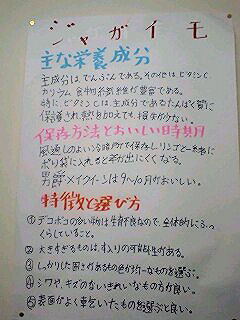 ジャガイモ
主な栄養成分
主成分は、でんぷんである。その他はビタミンC、
カリウム、食物繊維が豊富である。
特に、ビタミンCは、主成分であるたんぱく質に
保護され熱を加えても、損なが少ない。
保存方法とおいしい時期
風通しのよい冷暗所で保存しリンゴと一緒に
ポリ袋に入れると芽が出にくくなる。
男爵、メイクイーンは9〜10月がおいしい。
特徴と選び方
①デコボコの多い物は生育不良なので、全体的にふっ
くらしていること。
②大きすぎるものは、す入りの可能性がある。
③しっかりした固さがあるもの色が均一なものを選ぶ。
④シワや、キズのないきれいなものの方が良い。
⑤表面がよく乾いたものを選ぶと良い。